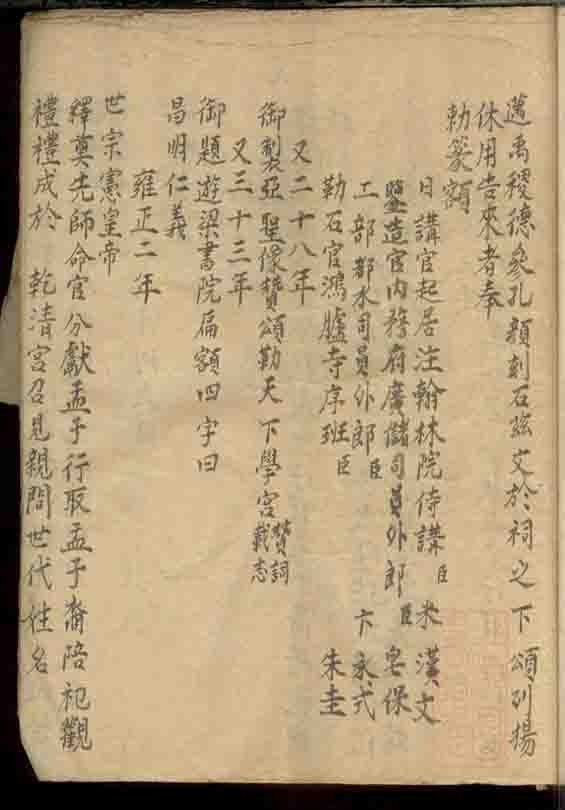 邁禹稷德參孔顏刻石茲文於祠之下頌列揚
休用告來者奉
勅篆額
日講官起居注翰林院侍講臣米漢文
監造官內務府廣儲司員外郎臣皂保
工部都水司員外郎臣卞永式
勒石官鴻臚寺序班臣朱圭
又二十八年
御製亞聖像贊頒勒天下學宮贊詞載志
又三十三年
御題遊梁書院扁額四字曰
昌明仁義
雍正二年
世宗憲皇帝
釋奠先師命官分獻孟子行取孟子裔陪祀觀
禮禮成於 乾清宮召見親問世代姓名